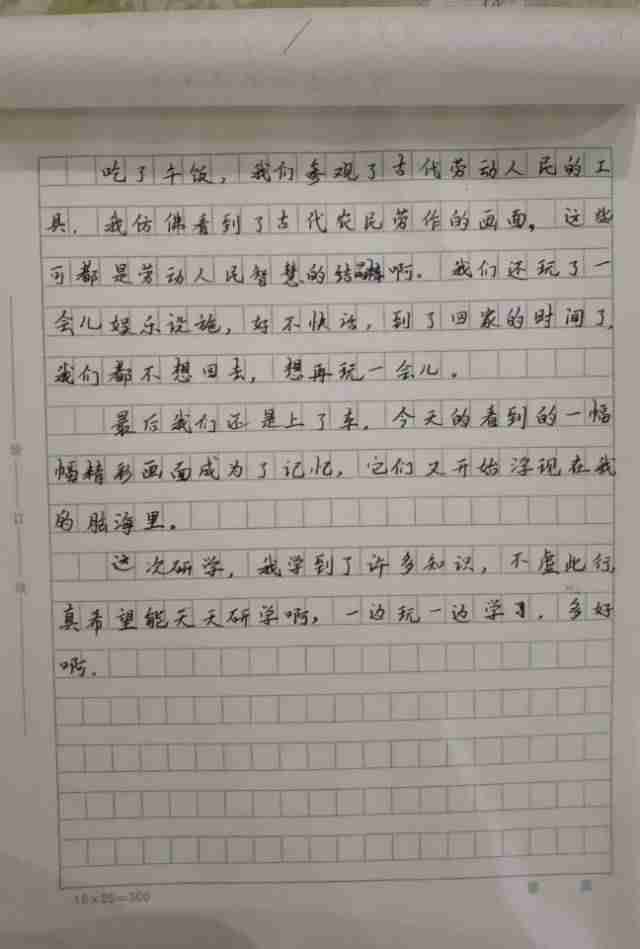 吃了午饭，我们参观了古代劳动人民的工
具，我仿佛看到了古代农民劳作的画面。这些
可都是劳动人民智慧的结晶啊。我们还玩了一
会儿娱乐设施，好不快活，到了回家的时间了，
我们都不想回去，想再玩一会儿。
最后我们还是上了车。今天的看到的一幅
幅精彩画面成为了记忆，它们又开始浮现在我
的脑海里。
这次研学，我学到了许多知识，不虚此行，
真希望能天天研学啊，一边玩一边学习，多好
啊。
订